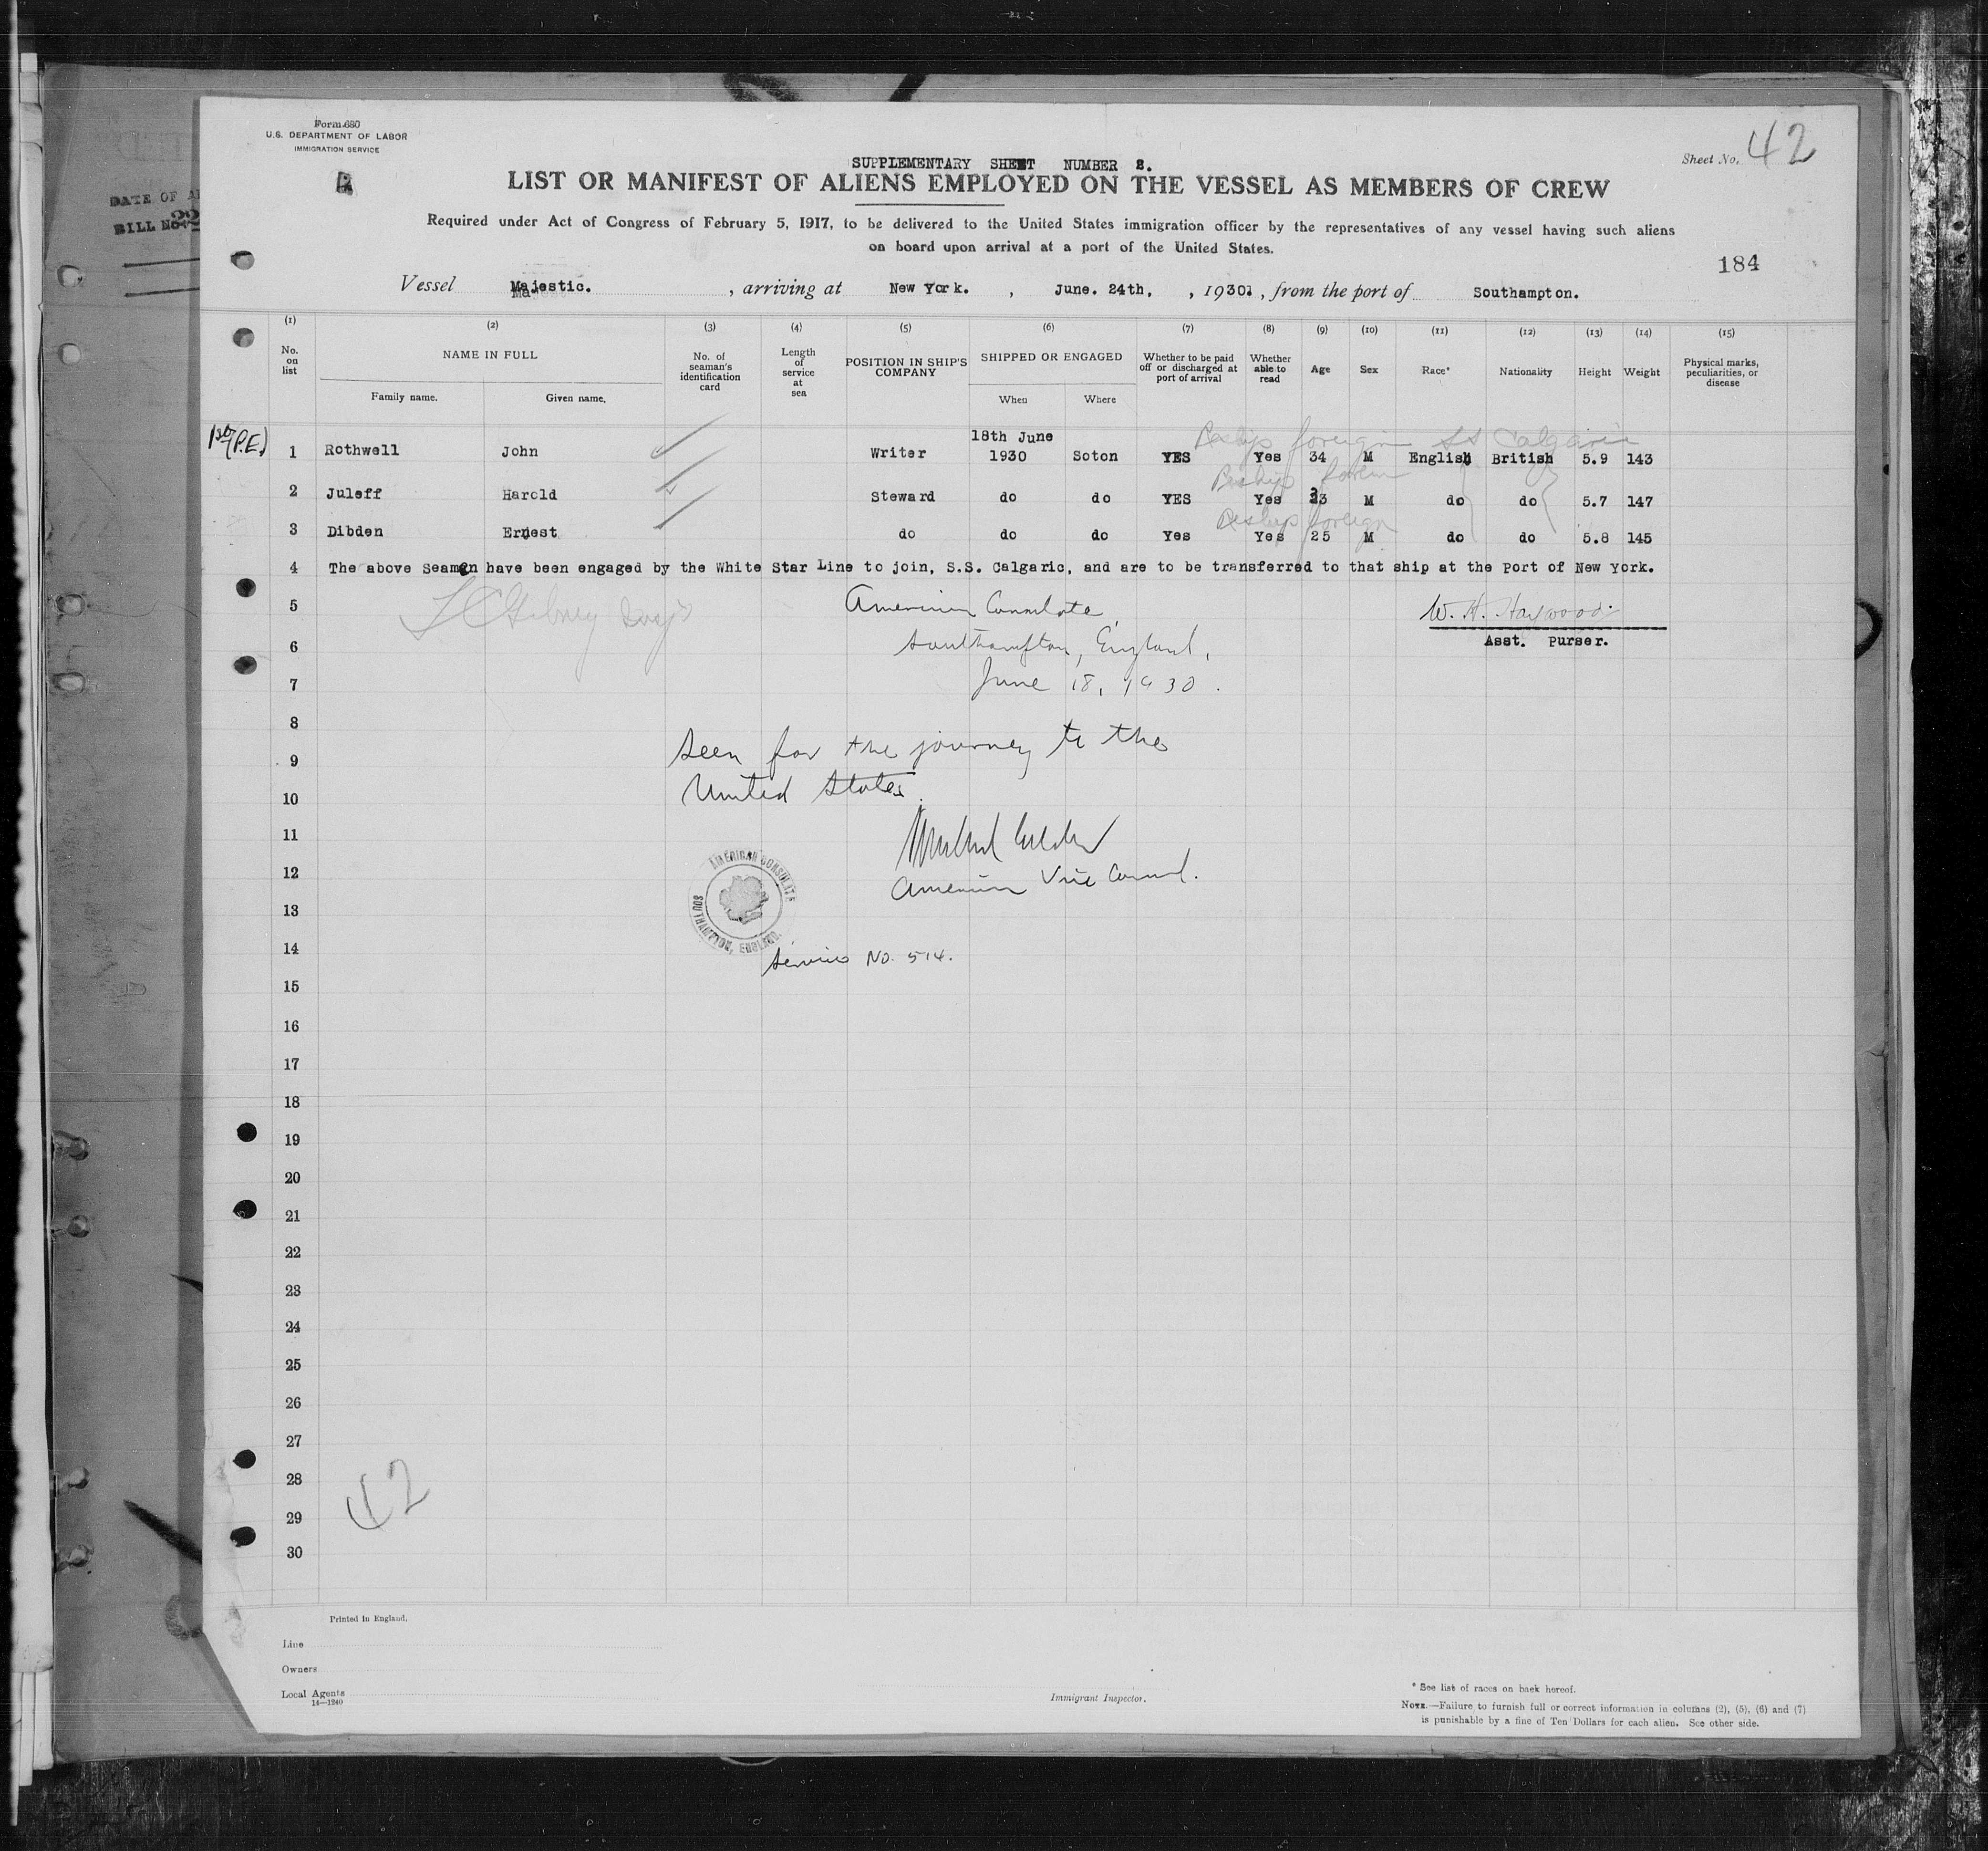 Form 680
U.S. DEPARTMENT OF LABOR
IMMIGRATION SERVICE
SUPPLEMENTARY SHEET NUMBER 2.
Sheet No. 42
LIST OR MANIFEST OF ALIENS EMPLOYED ON THE VESSEL AS MEMBERS OF CREW
Required under Act of Congress of February 5, 1917, to be delivered to the United States immigration officer by the representatives of any vessel having such aliens
on board upon arrival at a port of the United States.
184
DATE OF
BILL No.
Vessel Majestic. , arriving at New York. , June. 24th, , 1930. , from the port of Southampton.
(1) (2) (3) (4) (5) (6) (7) (8) (9) (10) (11) (12) (13) (14) (15)
No. on list NAME IN FULL No. of seaman's identification card Length of service at sea POSITION IN SHIP'S COMPANY SHIPPED OR ENGAGED Whether to be paid off or discharged at port of arrival Whether able to read Age Sex Race* Nationality Height Weight Physical marks, peculiarities, or disease
Family name. Given name. When Where
1st (P.E.)
Reships foreign SS Calgaric
1 Rothwell John Writer 18th June 1930 Soton YES Yes 34 M English British 5.9 143
Reships foreign
2 Juleff Harold Steward do do YES Yes 33 M do do 5.7 147
Reships foreign
3 Dibden Ernest do do do Yes Yes 25 M do do 5.8 145
4 The above Seamen have been engaged by the White Star Line to join, S.S. Calgaric, and are to be transferred to that ship at the Port of New York.
5 American Consulate, W. H. Haywood.
6 Southampton, England, Asst. Purser.
7 June 18, 1930.
8
9 Seen for the journey to the
10 United States.
11
12 American Vice Consul.
AMERICAN CONSULATE
SOUTHAMPTON, ENGLAND.
13
14 Service No. 514.
15
16
17
18
19
20
21
22
23
24
25
26
27
28
42
29
30
Printed in England.
Line
Owners
Local Agents
14—1240
Immigrant Inspector.
* See list of races on back hereof.
NOTE.—Failure to furnish full or correct information in columns (2), (5), (6) and (7)
is punishable by a fine of Ten Dollars for each alien. See other side.